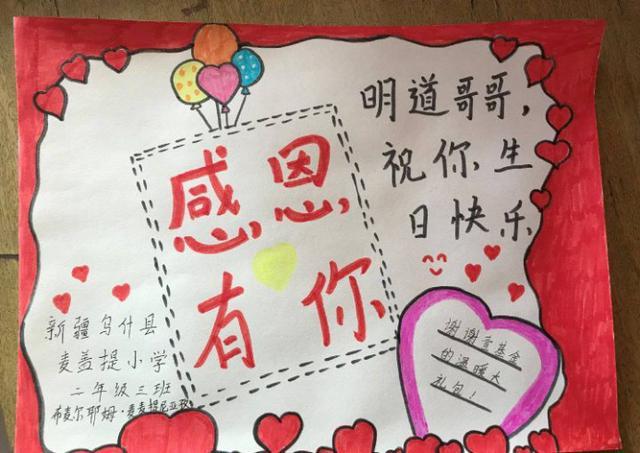 明道哥哥,
祝你生
日快乐
感恩
有你
新疆乌什县
麦盖提小学
二年级三班
布麦尔耶姆·麦麦提尼亚孜
谢谢言基金
的温暖大
礼包!